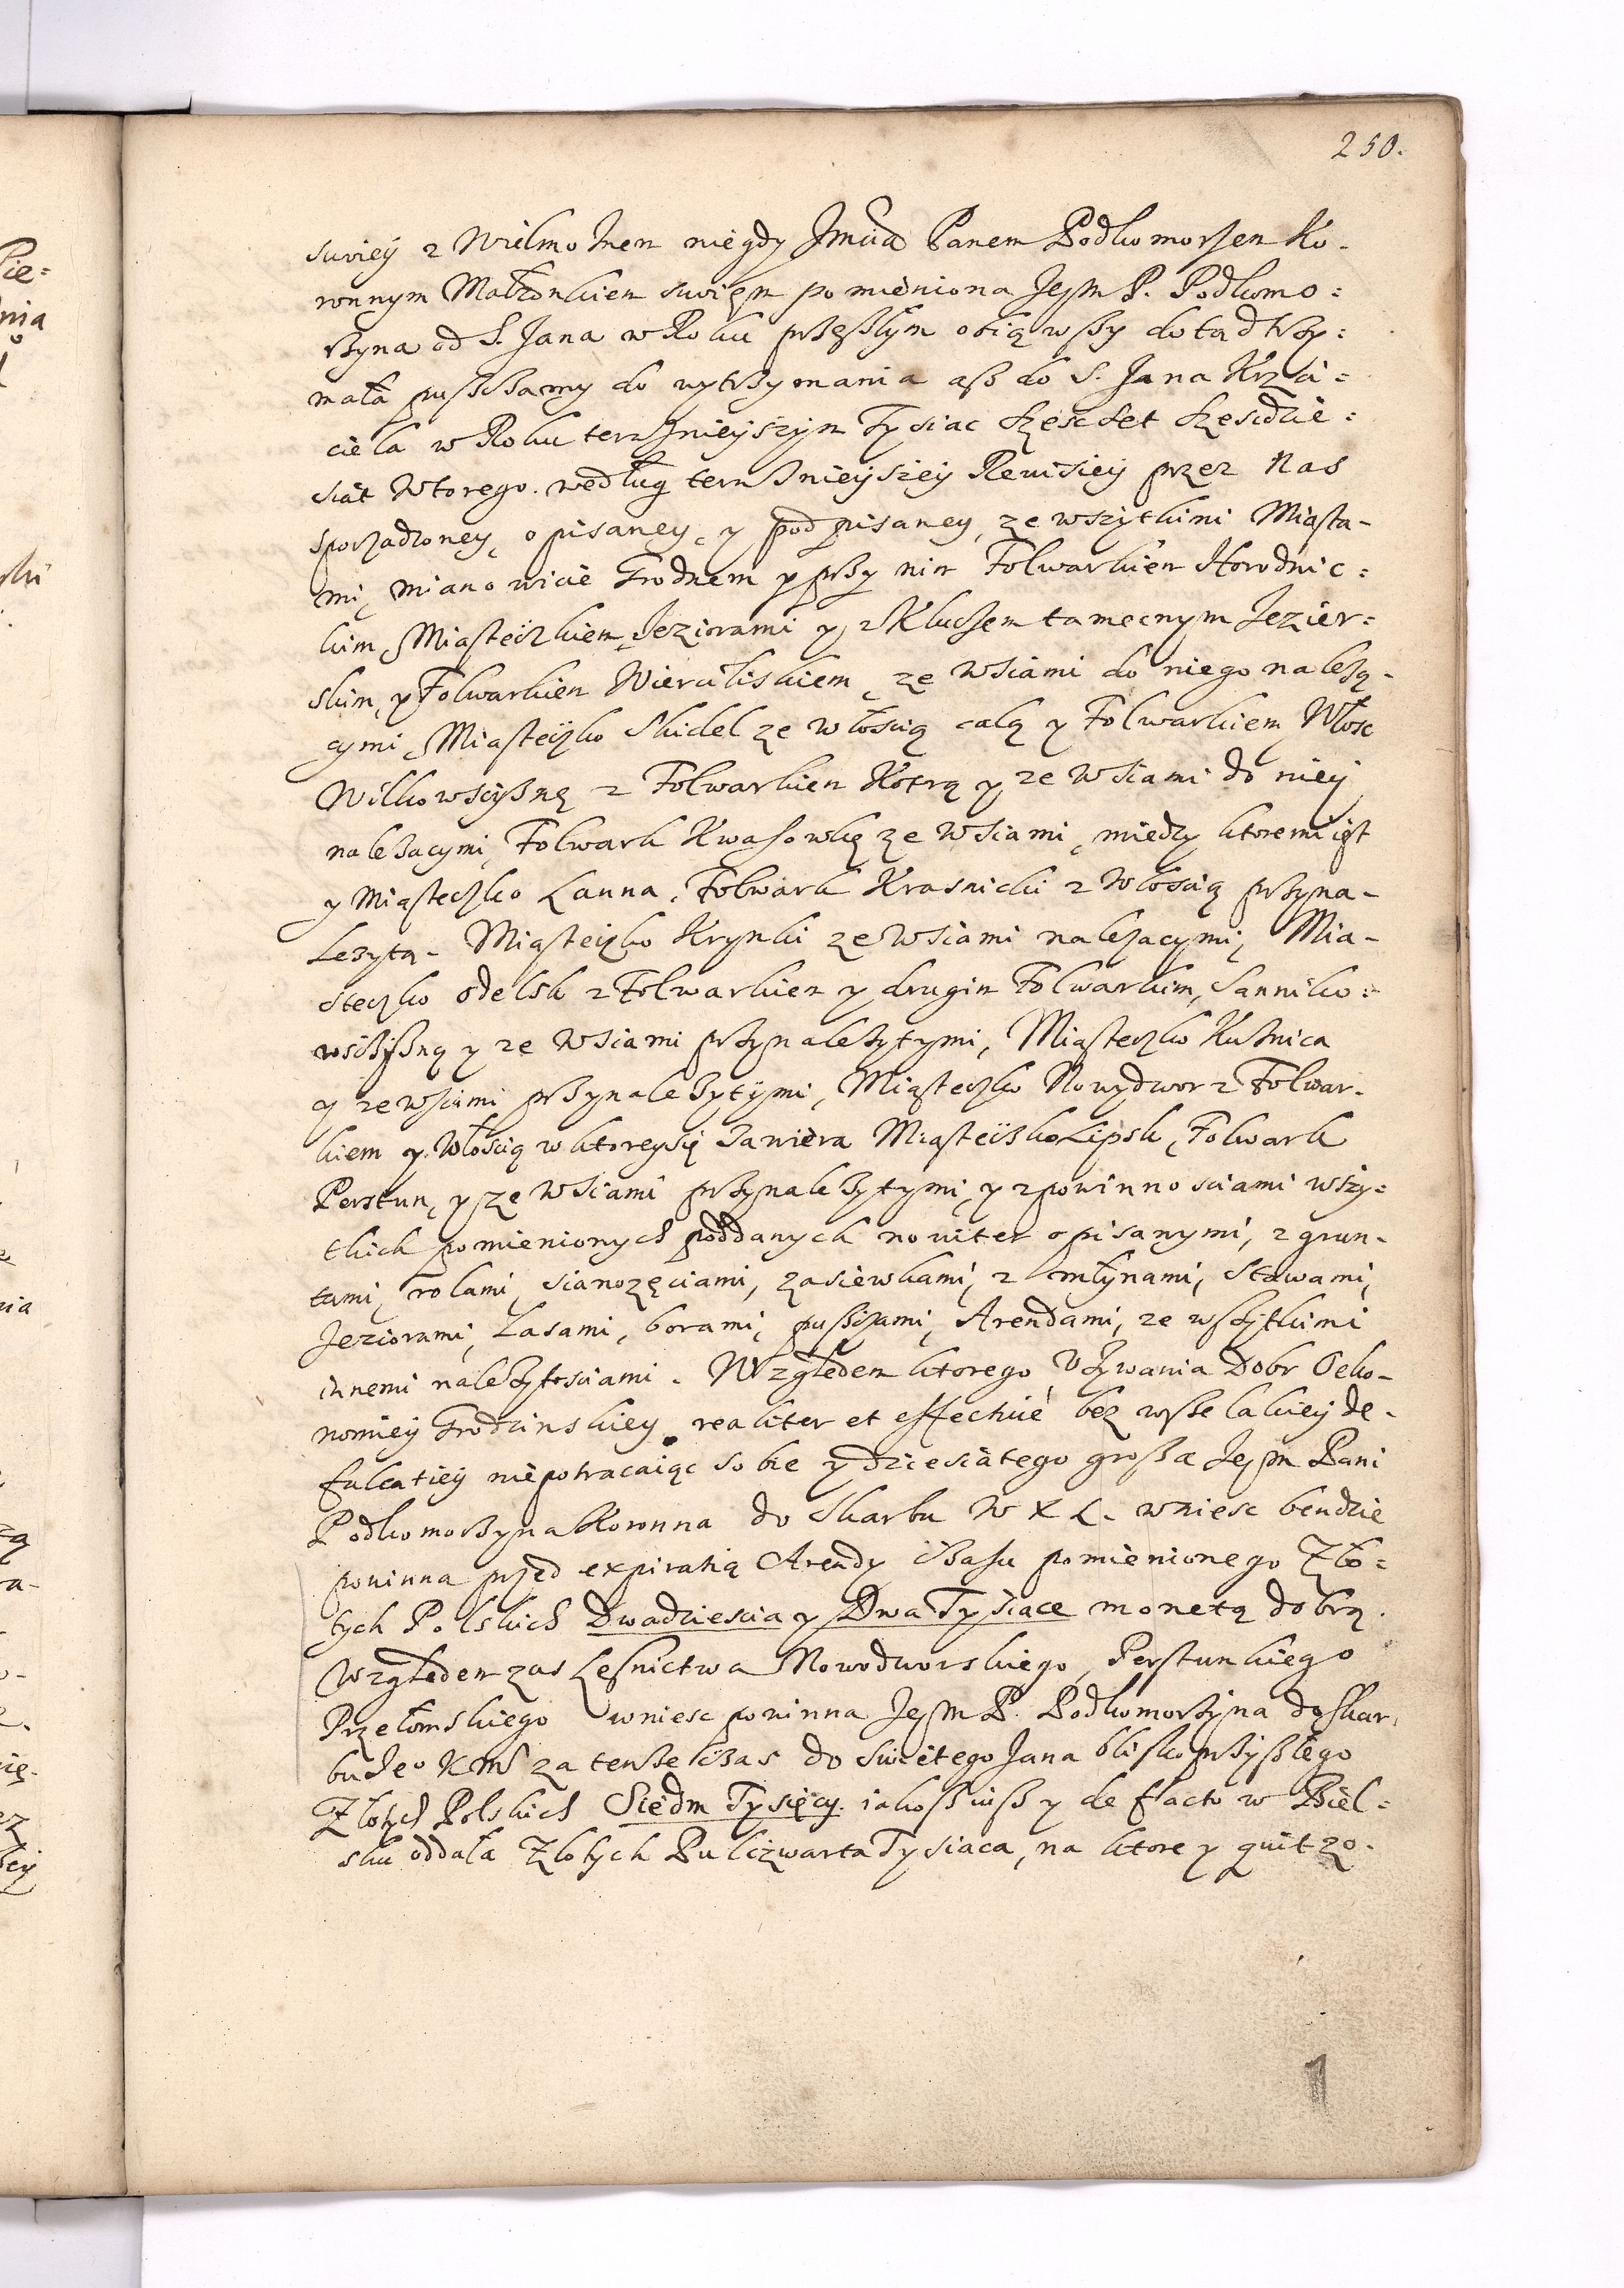 250.
swiey z Wielmożnem niegdy Jmcią Panem Podkomorzem Ko-
ronnym Małżonkiem swięm pomieniona Jejm P. Podkomo=
rzyna od S. Jana w Roku przeszłym obiąwszy dotąd trzy=
mała puszczamy do wytrzymania asz do S. Jana Krzci=
ciela w Roku ternznieyszym Tysiac szescset szescdzie=
siąt wtorego. według ternznieyszey Rewisiey przez Nas
sporządzoney, opisaney, y podpisaney, ze wszytkimi Miasta-
mi, mianowicie Grodnem y przy nim Folwarkiem Horodnic=
kim, Miasteczkiem Jeziorami y z Kluczem tamecnym Jezier=
skim, y Folwarkiem Wierciliskiem, ze wsiami do niego nalezą-
cymi, Miasteczko Skidel ze włoscią całą y Folwarkiem Włosc
Wilkowsczyzną z Folwarkiem Kotrą y ze wsiami do niey
nalezącymi, Folwark Kwasowkę ze wsiami, miedzy ktoremi jest
y Miasteczko Łanna, Folwark Krasnicki z Włoscią przyna-
lezytą- Miasteczko Krynki ze wsiami nalezacymi, Mia-
steczko Odelsk z Folwarkiem y drugim Folwarkim, Sanniko=
wsczyzną y ze wsiami przynalezytymi, Miasteczko Kuznica
y ze wsiami przynalezytymi, Miasteczko Nowydwor z Folwar-
kiem y Włoscią w ktorey się zawiera Miasteczko Lipsk, Folwark
Perstun, y ze wsiami przynalezytymi, y z powinnosciami wszy=
tkich pomienionych poddanych noviter opisanymi, z grun-
tami, rolami, sianozęciami, zasiewkami, z młynami, stawami,
Jeziorami, Lasami, borami, puszczami, Arendami, ze wszytkimi
innemi nalezytosciami. Względem ktorego Uzywania Dobr Oeko-
nomiey Grodzinskiey realiter et effective bez wszelakiey de-
falcatiey niepotracaiąc sobie y dziesiątego grosza Jejm Pani
Podkomorzyna Koronna do Skarbu W X L. wniesc bendzie
powinna przed expiratią Arendy czasu pomienionego Zło=
tych Polskich Dwadziescia y Dwa Tysiace monetą dobrą.
Względem zas Lesnictwa Nowodworskiego, Perstunkiego
Przełomskiego wniesc powinna Jejm P. Podkomorzyna do skar,
bu Je° K Mś za tenze czas do swiętego Jana blisko przyszłego
Złotych Polskich Siedm Tysięcy. iakosz iusz y de facto w Biel=
sku oddała Złotych Pułczwarta Tysiaca, na ktore y quit zo-
1